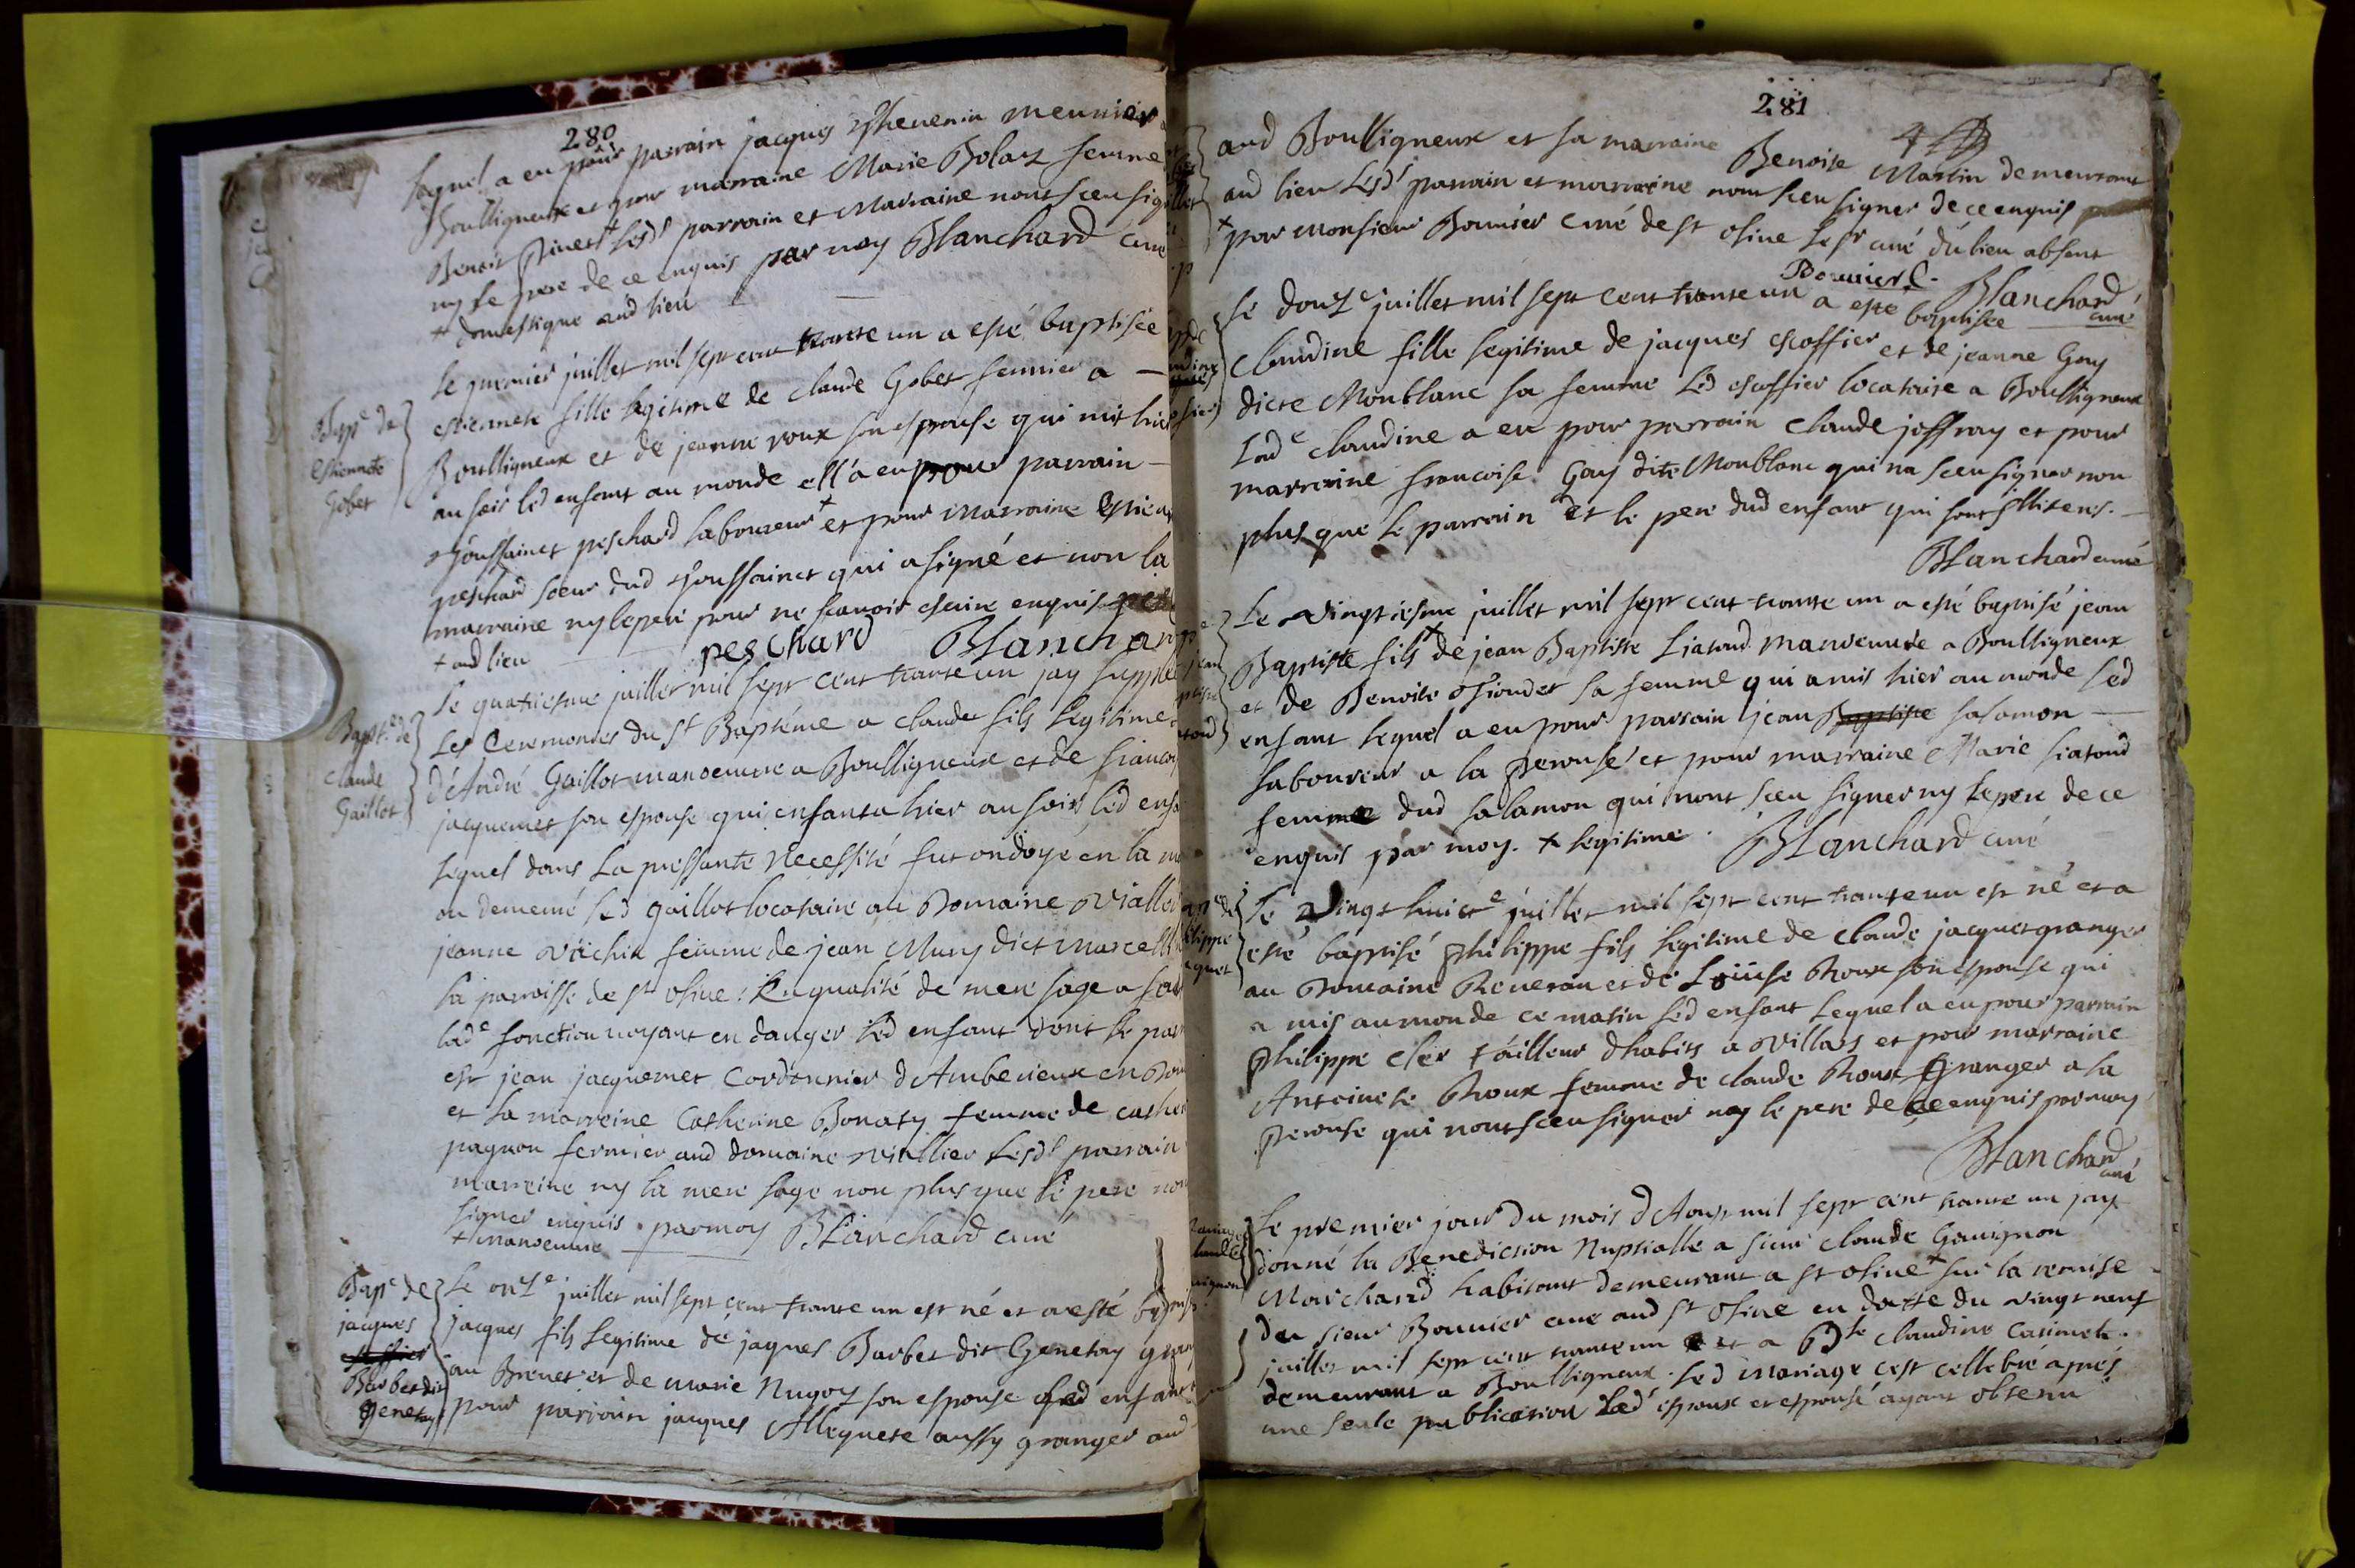 280
lequel a eu pour parrain jacques Thevenin meunier a
Boulligneux et pour marraine Marie Bolaz femme
Benoit lesds parrain et Marraine nont sceu sig
ny le pere de ce enquis par moy Blanchard curé
+ domestique aud lieu
Le premier juillet mil sept cent trante un a esté baptisée
estiennete fille legitime de claude Gobet fermier a
Boulligneux et de jeanne roux son espouse qui mit hier
au soir led enfant au monde ell'a eu pour parrain
Thoussainct peschard laboureur + et pour Marraine Estien
peschard soeur dud Thoussainct qui a signé et non la
marraine ny le pere pour ne scavoir escrire enquis
+ aud lieu peschard Blanchard
Bapt.e de
Estiennete
Gobet
Le quatriesme juillet mil sept cent trante un jay supplée
Les Ceremonies du St Baptéme a claude fils legitime
d'André Gaillot manoeuvre a Boulligneux et de francoi
jacquemet son espouse qui enfanta hier au soir led enfa
lequel dans la pressante Necessité fut ondoyé en la m
ou demeure led gaillot locataire au Domaine viallier
jeanne vichix femme de jean Muny dict marcell
la parroisse de st oline: En qualité de mere sage a fai
lade fonction voyant en danger led enfant dont le par
est jean jacquemet Cordonnier d'Amberieux en Dom
et la marreine Catherine Bonaty femme de cather
pagnon fermier aud domaine viallier lesds parrain
marreine ny la mere sage non plus que le pere non
signer enquis par moy Blanchard curé
+ manoeuvre
Bapt.e de
claude
Gaillot
Le onze juillet mil sept cent trante un est né et a esté baptisé
jacques fils legitime de jaques Barbet dit Genetay gran
au Brenet et de marie Nugoz son espouse led enfant
pour parrain jacques Allegnete aussy granger aud
Bap.e de
jacques
Barbet dit
genetay
281
aud Boulligneux et sa marraine Benoite Martin demeurant
aud lieu Lesds parrain et marraine nont sceu signer de ce enquis
+ pour Monsieur Bonnier curé de st oline le sr curé du lieu absent
Bouvier C. Blanchard
curé
Le douze juillet mil sept cent trante un a esté baptisée
Claudine fille legitime de jacques escoffier et de jeanne Gay
dicte Monblanc sa femme led escoffier locataire a Boulligneux
Lade claudine a eu pour parrain claude joffray et pour
marraine francoise Gay dite Monblanc qui na sceu signer non
plus que le parrain et le pere dud enfant qui sont illiteres.
Blanchard curé
Le vingtiesme juillet mil sept cent trante un a esté baptisé jean
Baptiste fils + de jean Baptiste Liatoud manoeuvre a Boulligneux
et de Benoite Thiondet sa femme qui a mis hier au monde led
enfant lequel a eu pour parrain jean Baptiste salomon
laboureur a la perouse et pour marraine Marie liatoud
femme dud salamon qui nont sceu signer ny le pere de ce
enquis par moy. + legitime. Blanchard curé
Le vingt huict e juillet mil sept cent trante un est né et a
esté baptisé philippe fils legitime de claude jacquet granger
au Domaine Reveran et de Louise Roux son espouse qui
a mis au monde ce matin led enfant lequel a eu pour parrain
philippe cler tailleur dhabits a villars et pour marraine
Antoinete Roux femme de claude Roux granger a la
perouse qui nont sceu signer ny le pere de ce enquis par moy
Blanchard
curé
Le premier jour du mois d'Aoust mil sept cent trante un jay
donné la Benediction Nuptialle a sieur claude Gauignon
Marchand habitant demeurant a st oline + sur la remise
du sieur Bonnier curé aud st oline en datte du vingt neuf
juillet mil sept cent trante un et a Dlle claudine Carimete
demeurant a Boulligneux. led mariage cest cellebré après
une seule publication Led espoux et espouse ayant obtenu